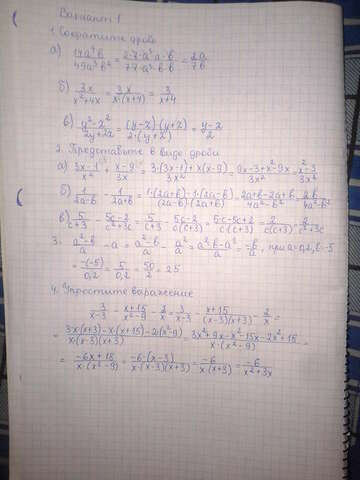 Вариант 1
1. Сократите дробь
а) 14a⁴b / 49a³b² = 2·7·a³·a·b / 7·7·a³·b·b = 2a / 7b
б) 3x / x²+4x = 3x / x·(x+4) = 3 / x+4
в) y²-z² / 2y+2z = (y-z)·(y+z) / 2·(y+z) = y-z / 2
2. Представьте в виде дроби
а) 3x-1 / x² + x-9 / 3x = 3·(3x-1)+x(x-9) / 3x² = 9x-3+x²-9x / 3x² = x²-3 / 3x²
б) 1 / 2a-b - 1 / 2a+b = 1·(2a+b)-1·(2a-b) / (2a-b)·(2a+b) = 2a+b-2a+b / 4a²-b² = 2b / 4a²-b²
в) 5 / c+3 - 5c-2 / c²+3c = 5 / c+3 - 5c-2 / c(c+3) = 5·c-5c+2 / c(c+3) = 2 / c(c+3) = 2 / c²+3c
3. a²-b / a - a = a²-b / a - a² / a = a²-b-a² / a = -b / a, при a=0,2, b=-5
= -(-5) / 0,2 = 5 / 0,2 = 50 / 2 = 25
4. Упростите выражение
3 / x-3 - x+15 / x²-9 - 2 / x = 3 / x-3 - x+15 / (x-3)(x+3) - 2 / x =
= 3x·(x+3)-x·(x+15)-2·(x²-9) / x·(x-3)(x+3) = 3x²+9x-x²-15x-2x²+18 / x·(x²-9) =
= -6x+18 / x·(x²-9) = -6·(x-3) / x·(x-3)(x+3) = -6 / x·(x+3) = -6 / x²+3x